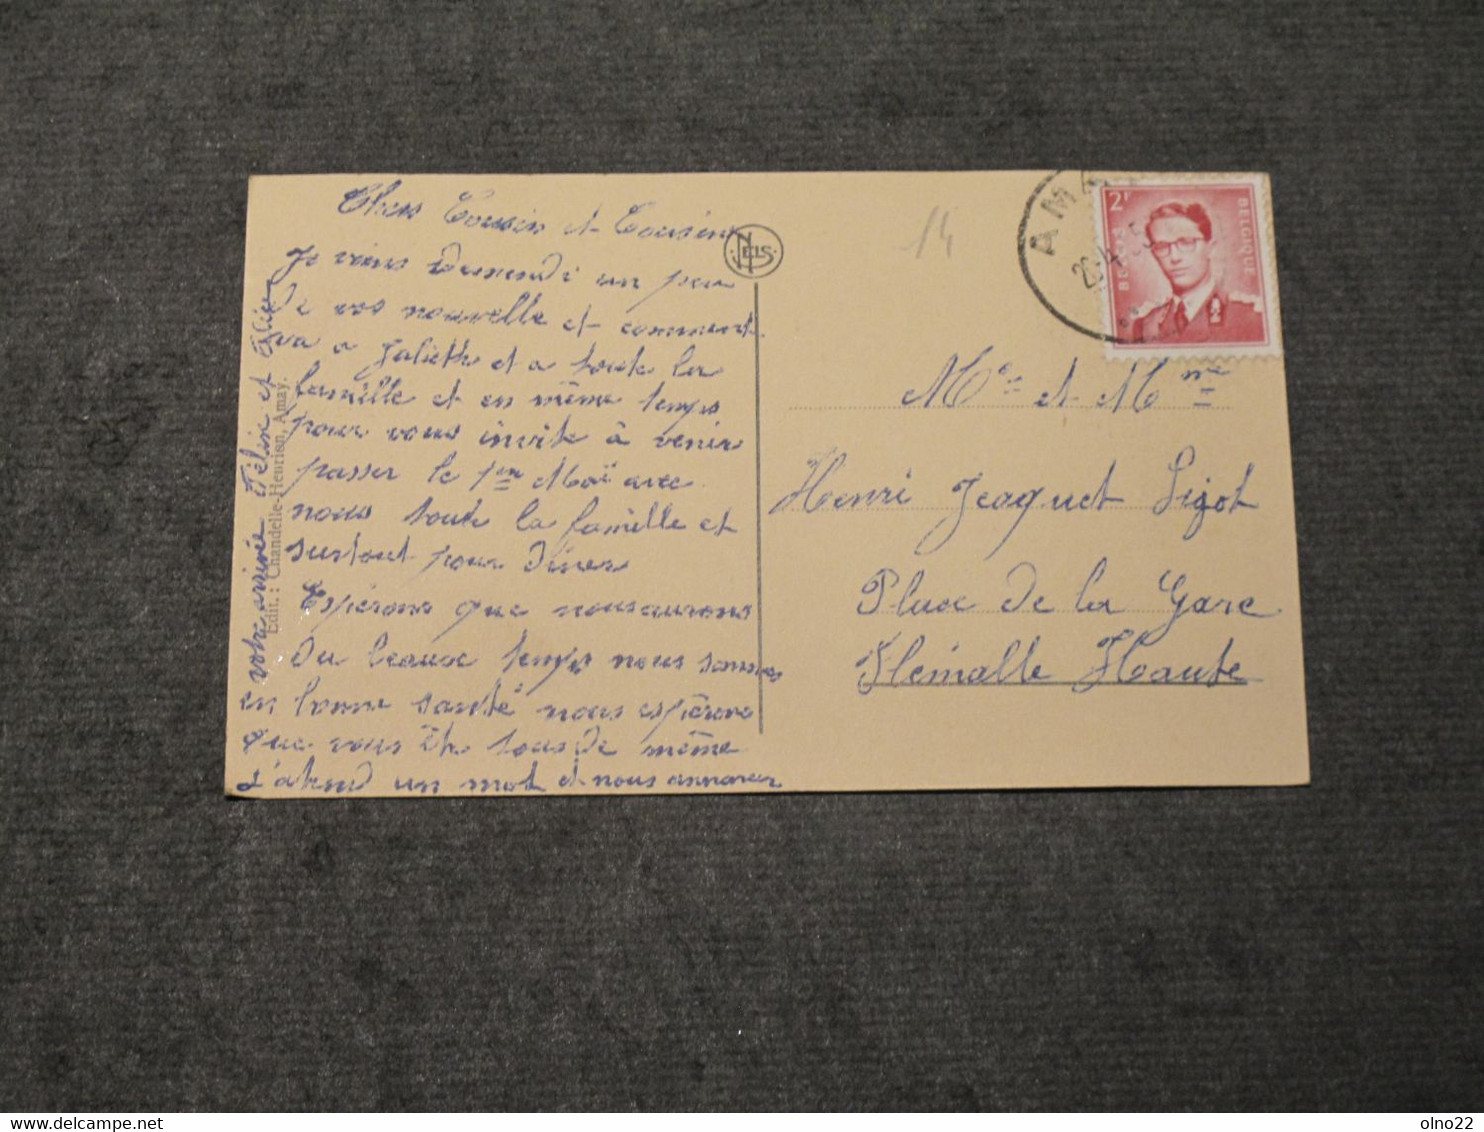 Chers Cousin et Cousine
Je viens Demendé un peu
De vos nouvelle et comment
va a Julieth et a toute la
famille et en même temps
pour vous invite à venir
passer le 1er Maï avec
nous toute la famille et
surtout pour Diner
Espérons que nous aurons
Du beaux temps nous sommes
en bonne santé nous espérons
que vous ête tous De même
J'atend un mot et nous annoncer
votre arrivée Féline et
Edit. : Chandelle-Henrion, Amay.
NELS
14
AMAY
2F
BELGIE
BELGIQUE
Mr et Mme
Henri Jeaquet Ligot
Place De la Gare
Flémalle Haute
olno22